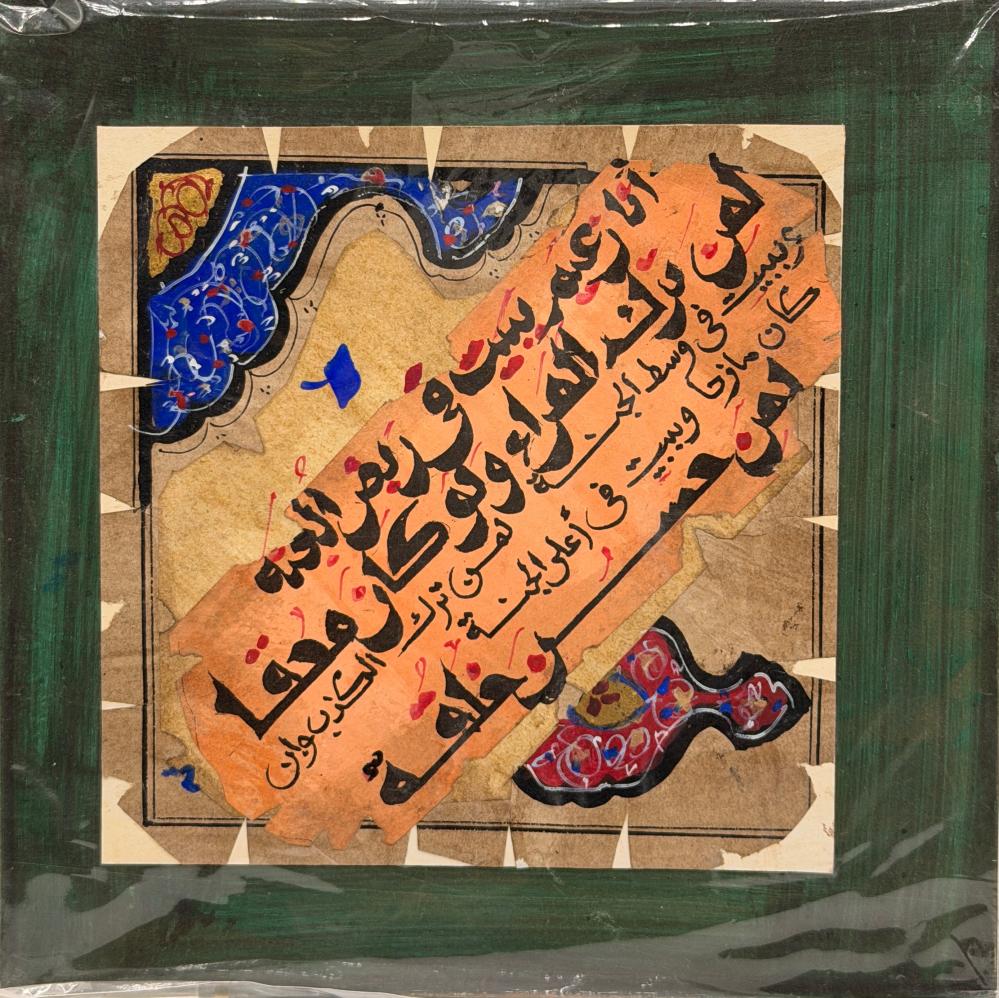 أنا زعيم ببيت في ربض الجنة
لمن ترك المراء ولو كان محقا
وببيت في وسط الجنة لمن ترك الكذب وإن
كان مازحا وببيت في أعلى الجنة
لمن حسن خلقه